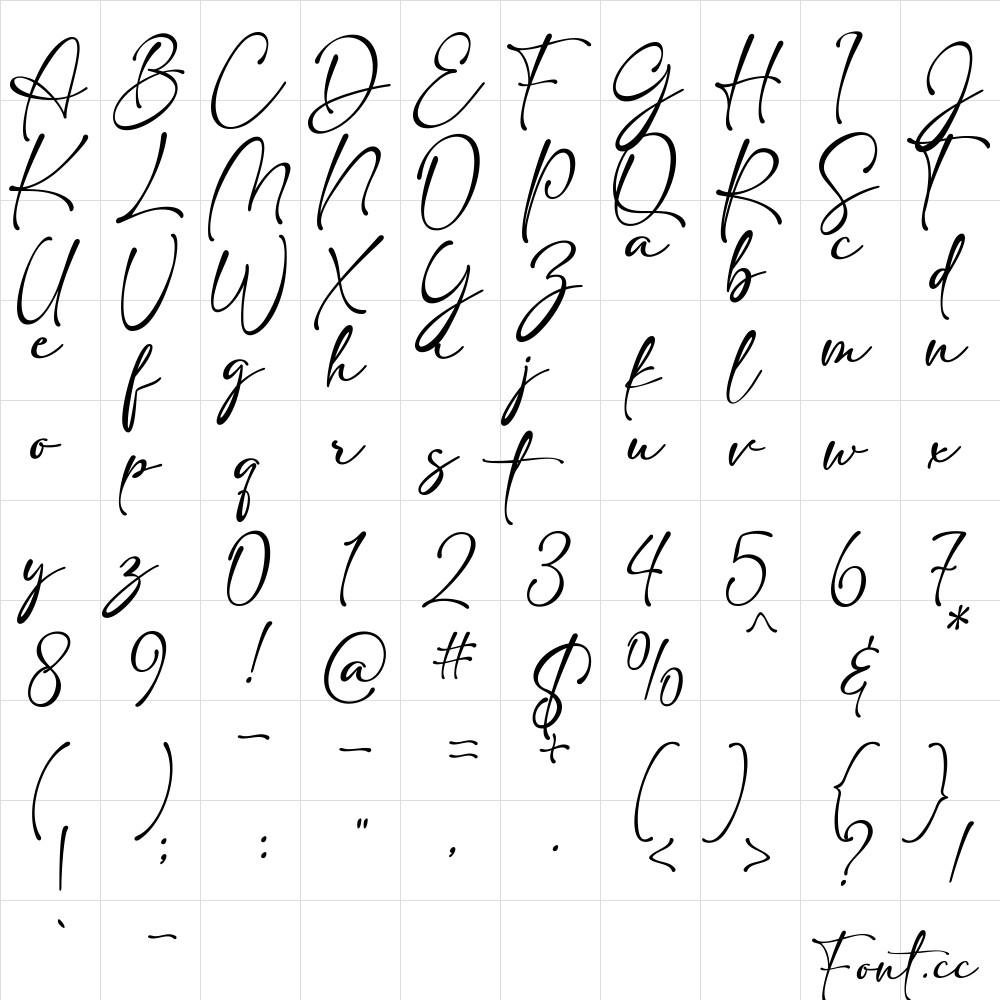 A B C D E F G H I J
K L M N O P Q R S T
U V W X Y Z a b c d
e f g h i j k l m n
o p q r s t u v w x
y z 0 1 2 3 4 5 6 7
8 9 ! @ # $ % ^ & *
( ) — – = + [ ] { }
| ; : " , . < > ? /
` –
Font.cc